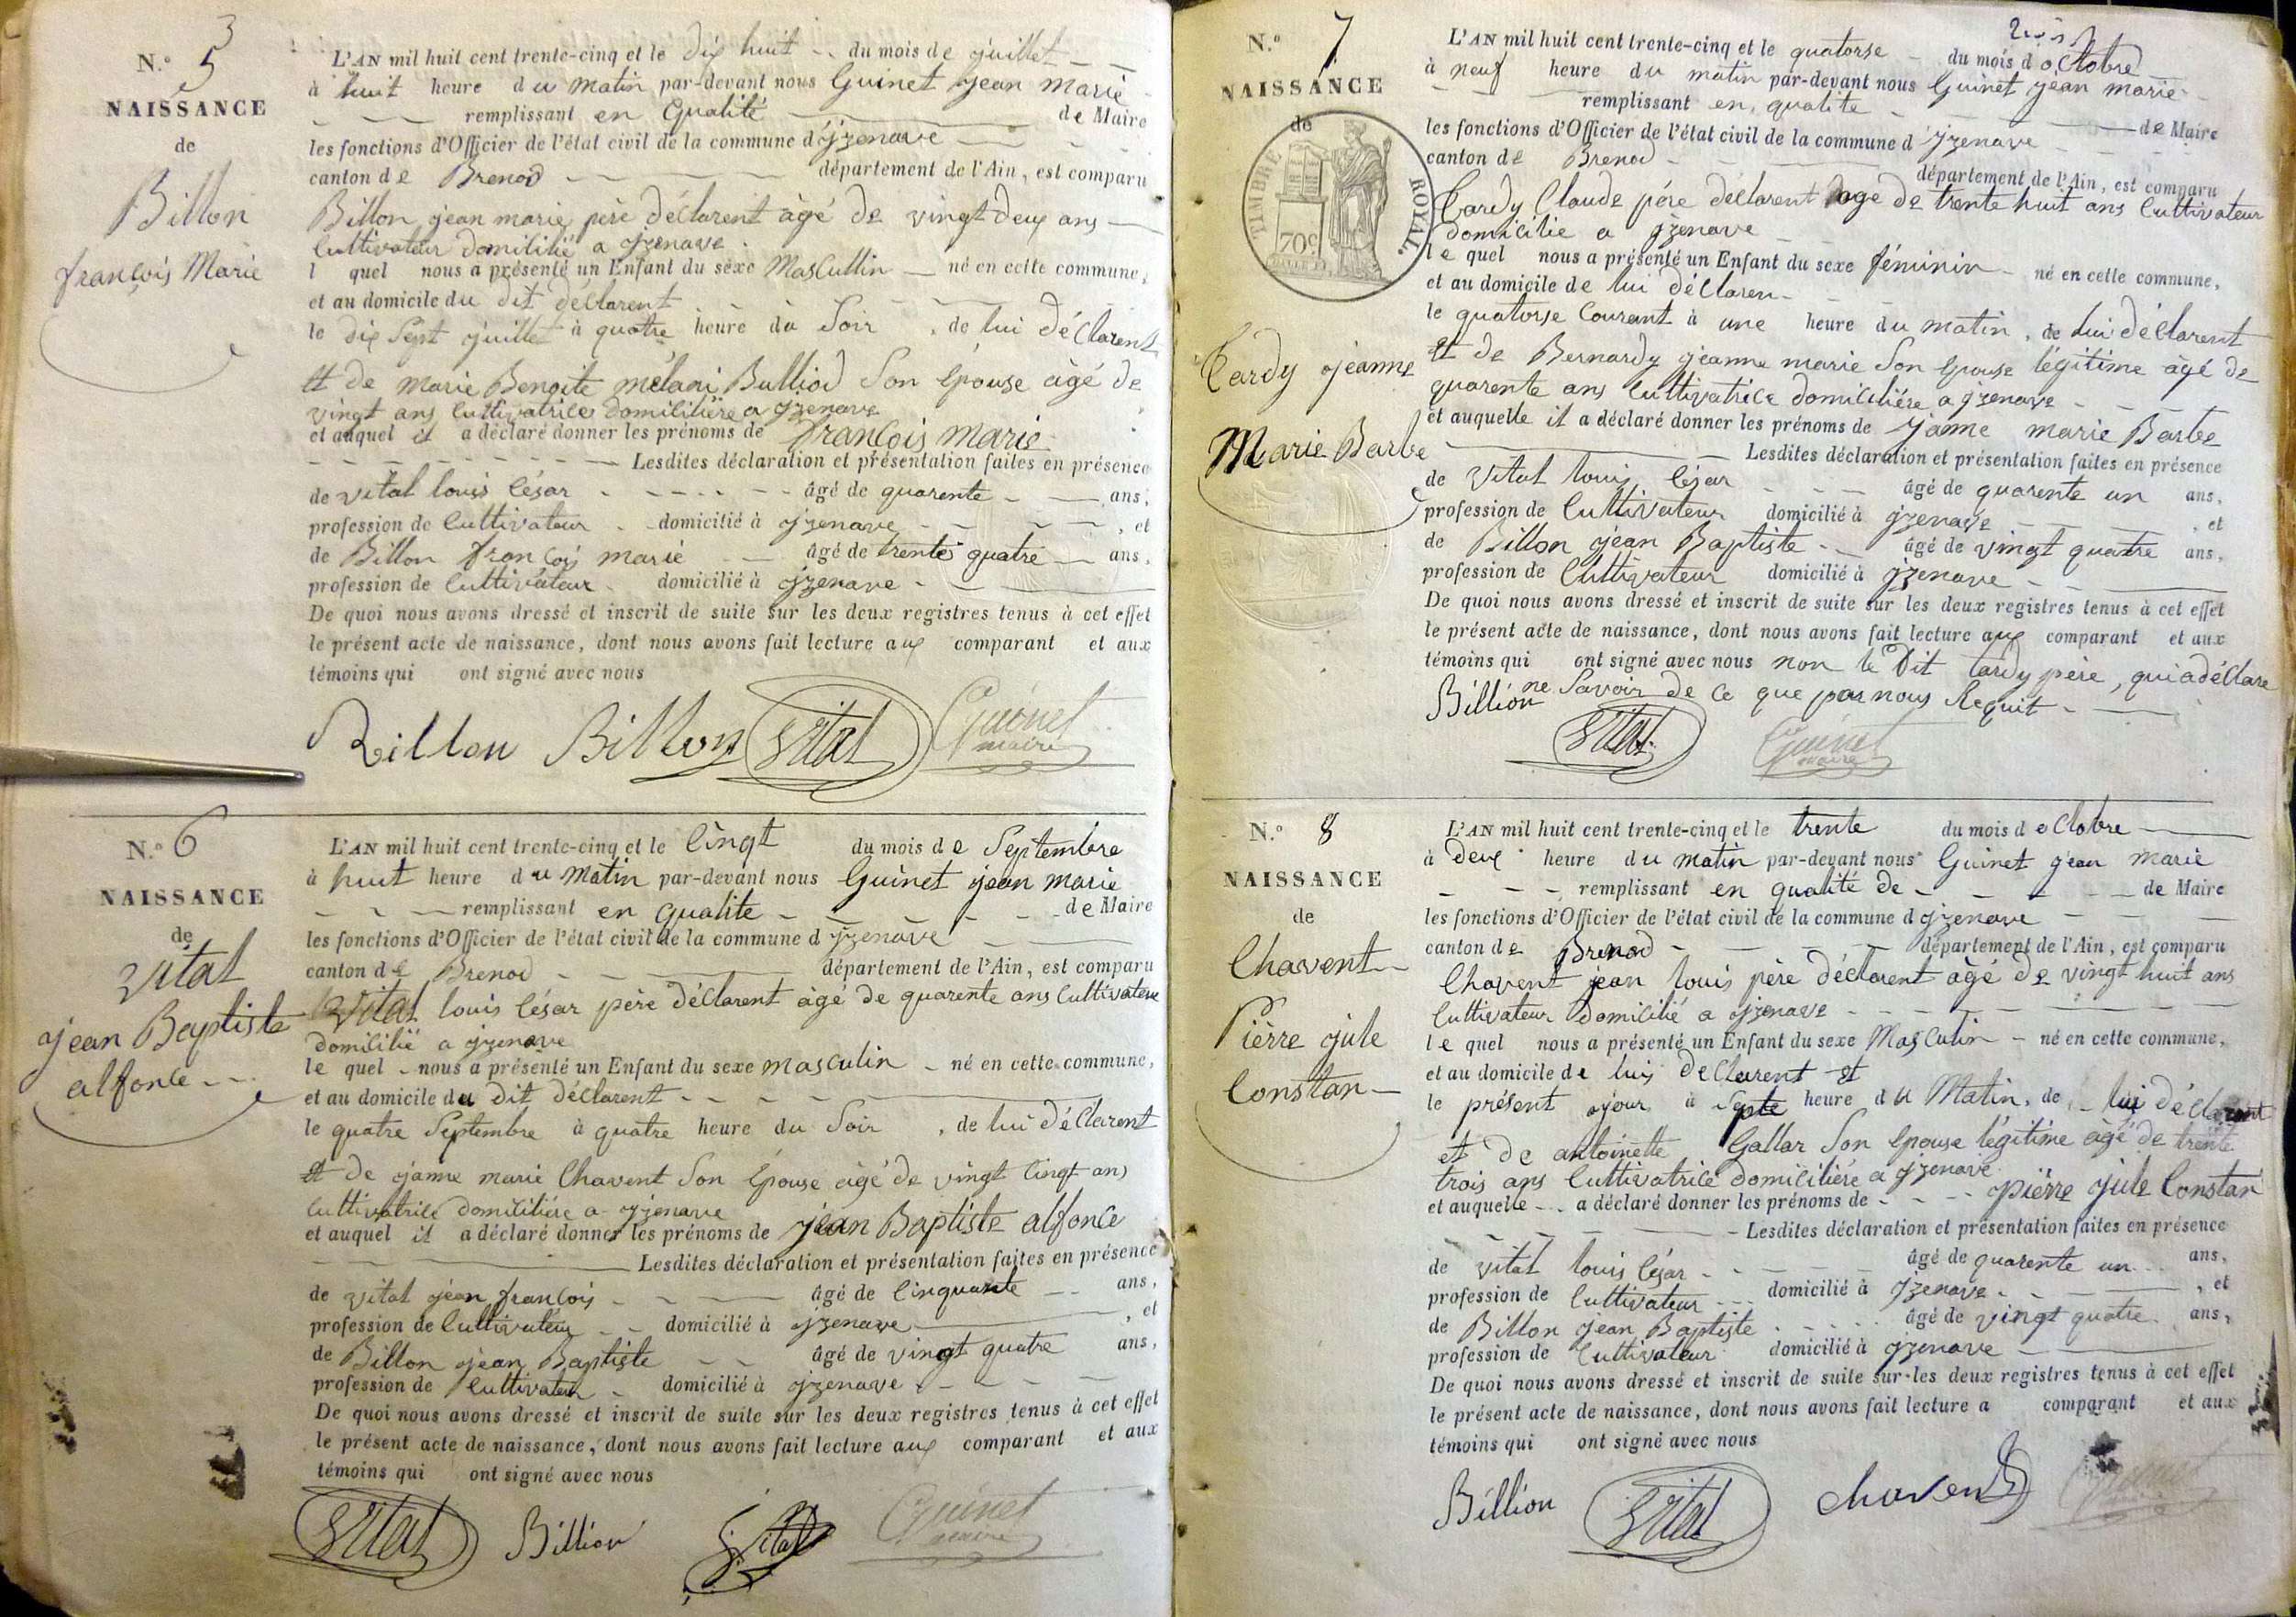 3
N.º 5
NAISSANCE
de
Billon
françois Marie
L'AN mil huit cent trente-cinq et le dix huit du mois de juillet
à huit heure du matin par-devant nous Guinet jean marie
remplissant en Qualité de Maire
les fonctions d'Officier de l'état civil de la commune d'jzenave
canton de Brenod département de l'Ain, est comparu
Billon jean marie père déClarent âgé de vingt deux ans
Cultivateur domicilié a jzenave
l quel nous a présenté un Enfant du sexe MasCullin né en cette commune,
et au domicile du dit déClarent
le dix Sept juillet à quatre heure du Soir, de lui déClarent
Et de marie Benoite mélani Bulliod Son Epouse âgé de
vingt ans Cultivatrice domicilière a jzenave
et auquel il a déclaré donner les prénoms de françois marie
Lesdites déclaration et présentation faites en présence
de vital louis César âgé de quarente ans,
profession de Cultivateur domicilié à jzenave, et
de Billon françois marie âgé de trente quatre ans,
profession de Cultivateur domicilié à jzenave
De quoi nous avons dressé et inscrit de suite sur les deux registres tenus à cet effet
le présent acte de naissance, dont nous avons fait lecture aux comparant et aux
témoins qui ont signé avec nous
Billon Billon Vital Guinet
maire
N.º 6
NAISSANCE
de
vital
jean Baptiste
alfonce
L'AN mil huit cent trente-cinq et le Cinqt du mois de Septembre
à huit heure du Matin par-devant nous Guinet jean marie
remplissant en qualite de Maire
les fonctions d'Officier de l'état civil de la commune d jzenave
canton de Brenod département de l'Ain, est comparu
Vital louis César père déClarent âgé de quarente ans Cultivateur
domicilié a jzenave
le quel nous a présenté un Enfant du sexe masculin né en cette commune,
et au domicile du dit déClarent
le quatre Septembre à quatre heure du Soir, de lui déClarent
Et de janne marie Chavent Son Epouse âgé de vingt Cinqt ans
Cultivatrice domicilière a jzenave
et auquel il a déclaré donner les prénoms de jean Baptiste alfonce
Lesdites déclaration et présentation faites en présence
de vital jean françois âgé de Cinquante ans,
profession de Cultivateur domicilié à jzenave, et
de Billon jean Baptiste âgé de vingt quatre ans,
profession de Cultivateur domicilié à jzenave
De quoi nous avons dressé et inscrit de suite sur les deux registres tenus à cet effet
le présent acte de naissance, dont nous avons fait lecture aux comparant et aux
témoins qui ont signé avec nous
Vital Billion Vital Guinet
maire
N.º 7
NAISSANCE
de
TIMBRE ROYAL
70c
Tardy jeanne
Marie Barbe
L'AN mil huit cent trente-cinq et le quatorse du mois d'oCtobre
à neuf heure du matin par-devant nous Guinet jean marie
remplissant en qualite de Maire
les fonctions d'Officier de l'état civil de la commune d'jzenave
canton de Brenod département de l'Ain, est comparu
Tardy Claude pére déClarent age de trente huit ans Cultivateur
domicilie a jzenave
le quel nous a présenté un Enfant du sexe féminin né en cette commune,
et au domicile de lui déClaren
le quatorse Courent à une heure du matin, de lui déClarent
Et de Bernardy jeanne marie Son Epouse légitime âgé de
quarente ans Cultivatrice domicilière a jzenave
et auquelle il a déclaré donner les prénoms de janne marie Barbe
Lesdites déclaration et présentation faites en présence
de vital louis César âgé de quarente un ans,
profession de Cultivateur domicilié à jzenave, et
de Billon jean Baptiste âgé de vingt quatre ans,
profession de Cultivateur domicilié à jzenave
De quoi nous avons dressé et inscrit de suite sur les deux registres tenus à cet effet
le présent acte de naissance, dont nous avons fait lecture aux comparant et aux
témoins qui ont signé avec nous non le Dit tardy père, qui a déClare
ne Savoir de Ce que par nous Requit
Billion
Vital Guinet
maire
N.º 8
NAISSANCE
de
Chavent
Pièrre jule
Constan
L'AN mil huit cent trente-cinq et le trente du mois d oCtobre
à deux heure du matin par-devant nous Guinet jean marie
remplissant en qualité de de Maire
les fonctions d'Officier de l'état civil de la commune d jzenave
canton de Brenod département de l'Ain, est comparu
Chavent jean louis père déClarent âgé de vingt huit ans
Cultivateur domicilié a jzenave
le quel nous a présenté un Enfant du sexe Masculin né en cette commune,
et au domicile de lui déClarent et
le présent jour à Septe heure du Matin, de lui déClarent
et de antoinette Gallar Son Epouse légitime âgé de trente
trois ans Cultivatrice domicilière a jzenave
et auquelle a déclaré donner les prénoms de pièrre jule Constan
Lesdites déclaration et présentation faites en présence
de vital louis César âgé de quarente un ans,
profession de Cultivateur domicilié à jzenave, et
de Billon jean Baptiste âgé de vingt quatre ans,
profession de Cultivateur domicilié à jzenave
De quoi nous avons dressé et inscrit de suite sur les deux registres tenus à cet effet
le présent acte de naissance, dont nous avons fait lecture a comparant et aux
témoins qui ont signé avec nous
Billion Vital chavent Guinet